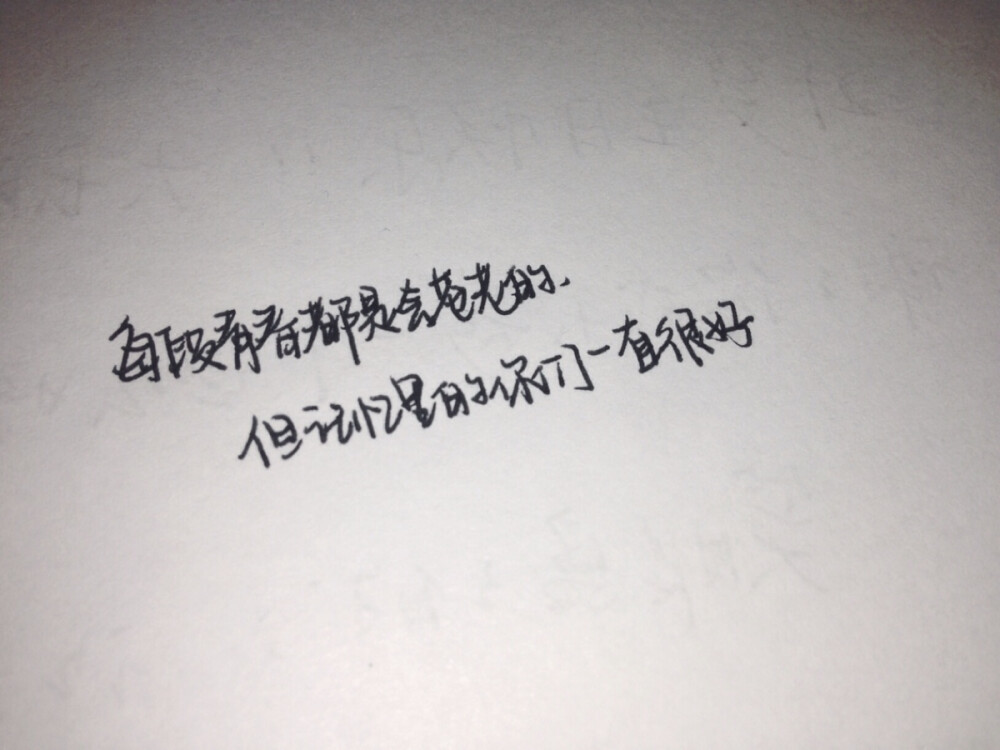 每段青春都是会苍老的.
但记忆里的你们一直很好